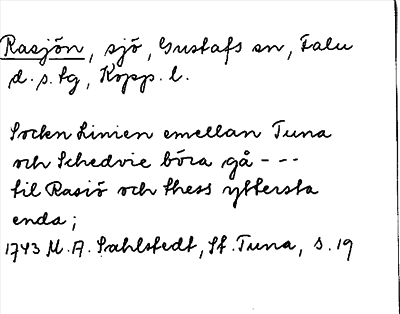 Rasjön, sjö, Gustafs sn, Falu
d. s. tg, Kopp. l.
Sockn Linien emellan Tuna
och Schedvie böra gå - - -
til Rasiö och thess yttersta
enda;
1743 M. A. Sahlstedt, St. Tuna, s. 19